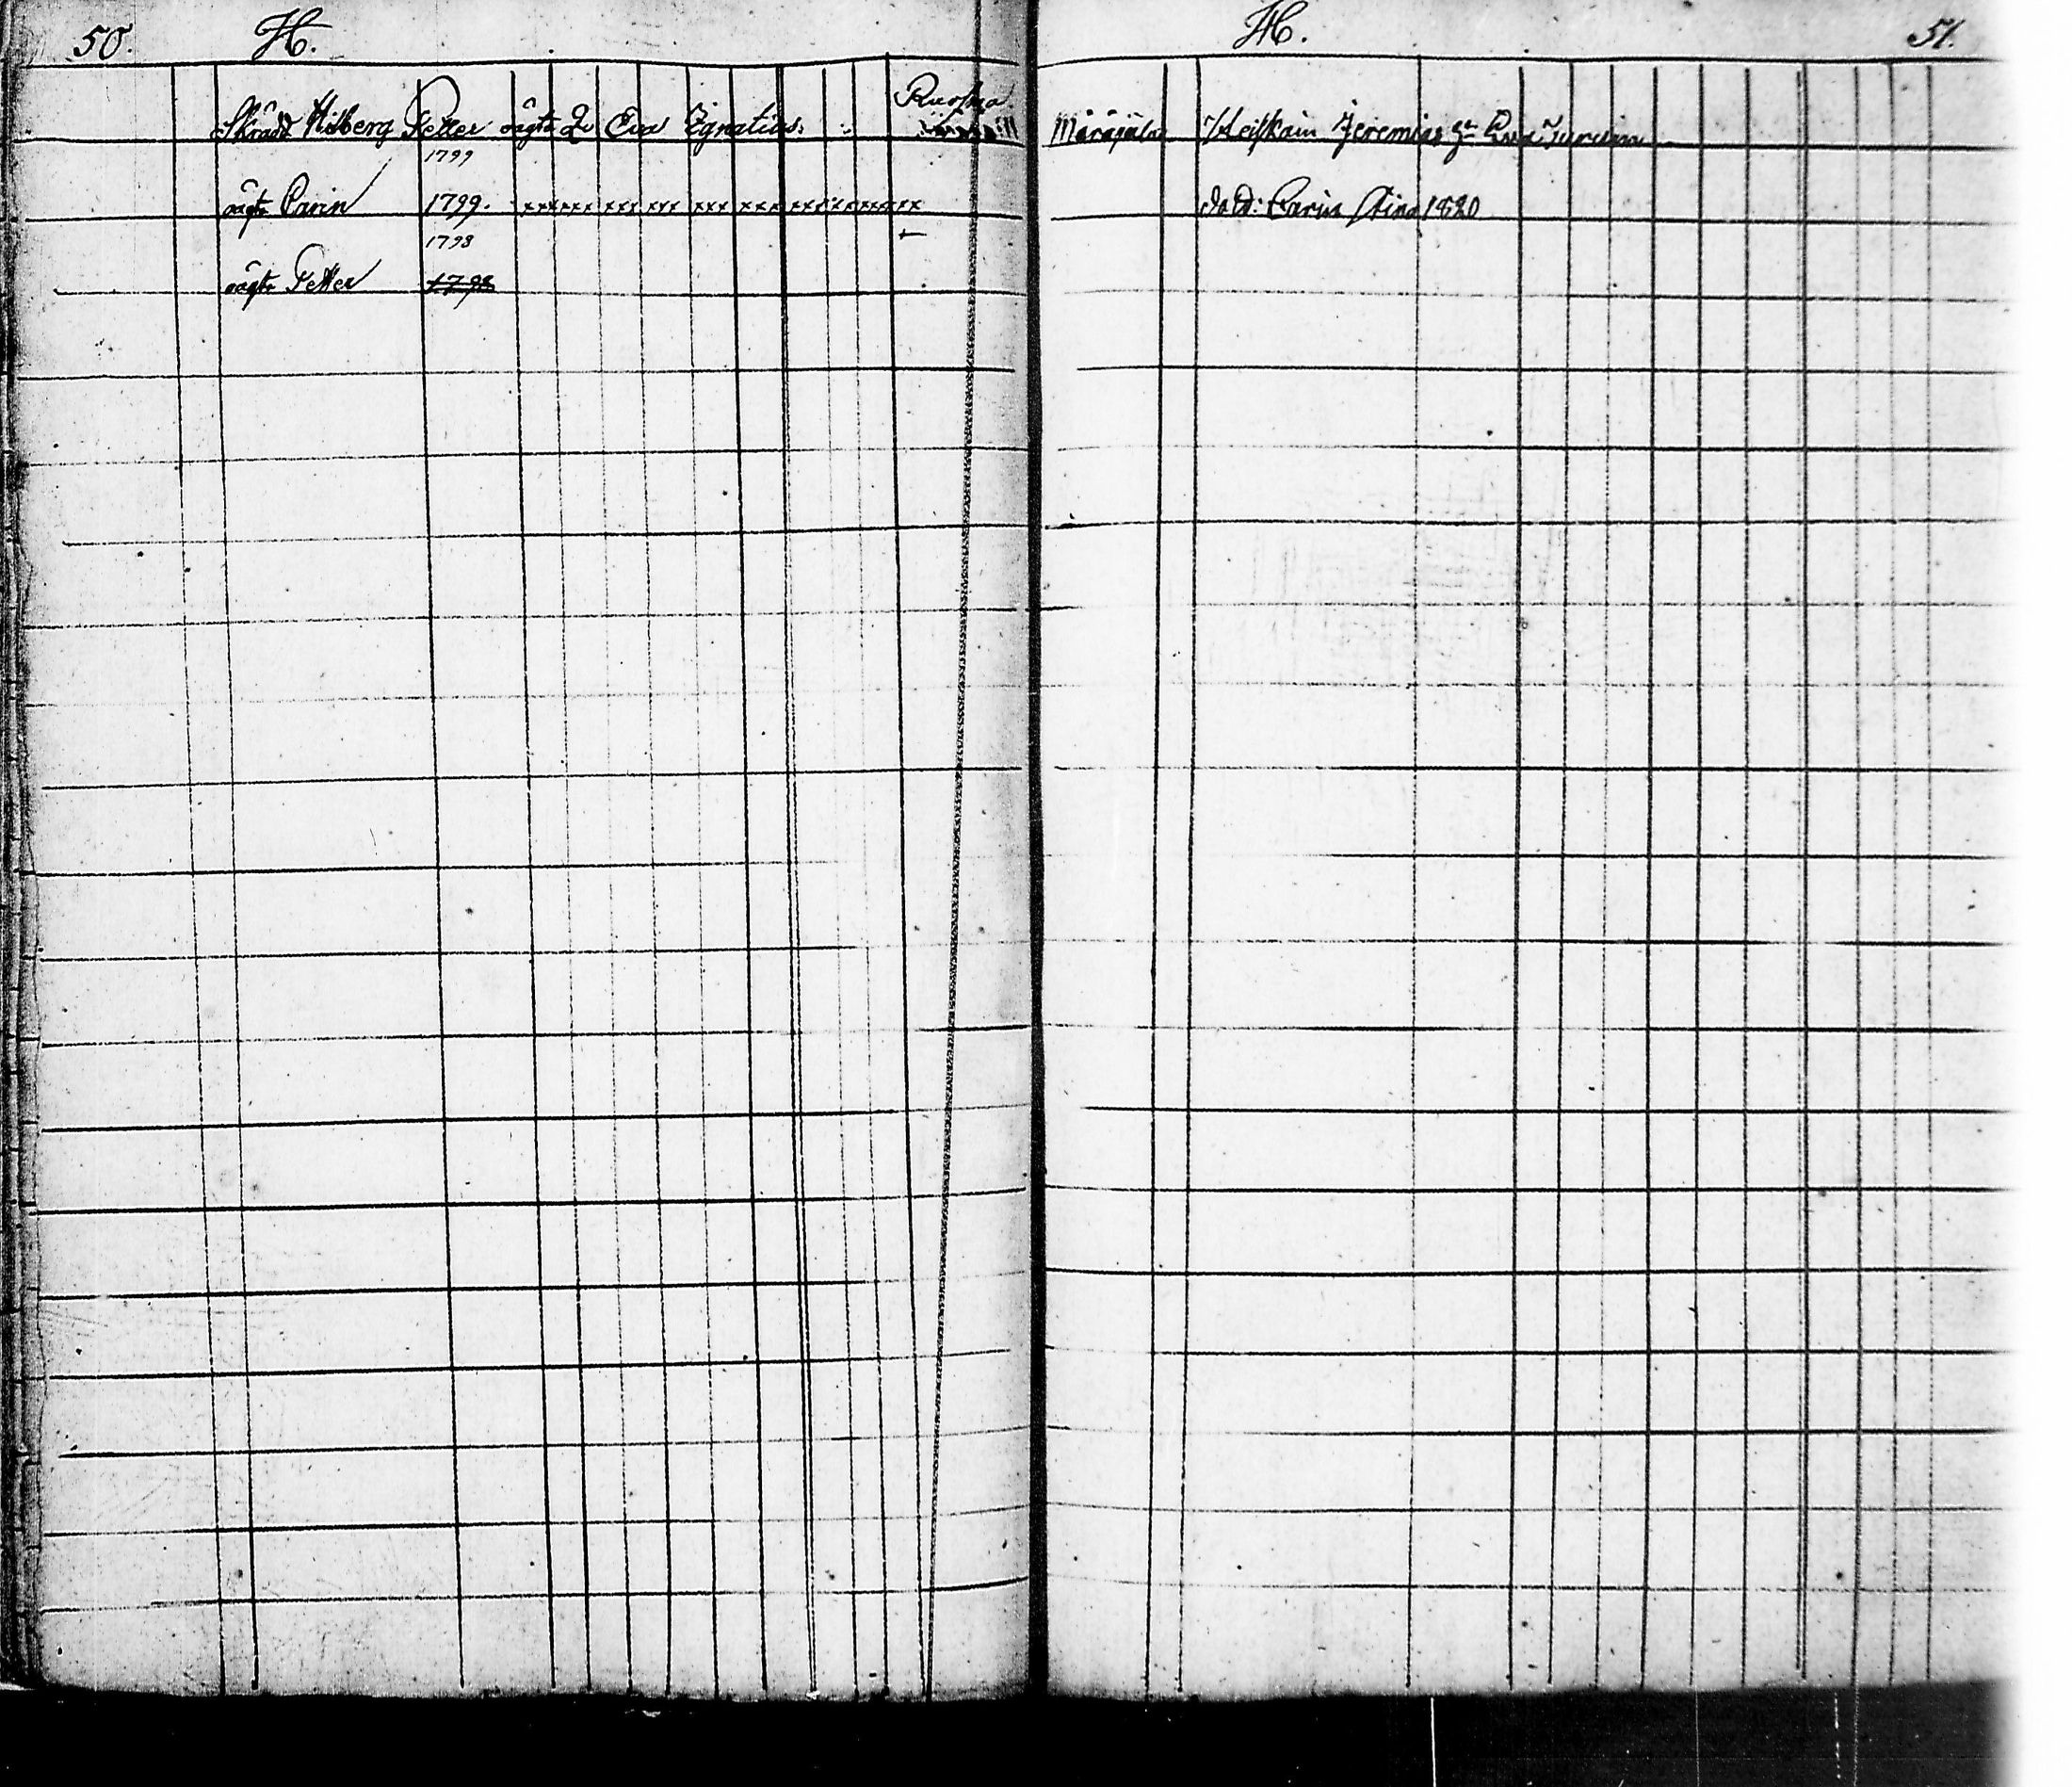 50.
H.
Skrädd Hilberg Petter oägta D Eva Ignatius
Ruoska
1799
oägta Carin 1799. xxxxxx xxx xxx xxx xxx xxx xxxxx xx
1798
oägta Petter 1798
H.
51.
Märäjälä Heiskain Jeremias Eva Turuin
Carin Stina 1820